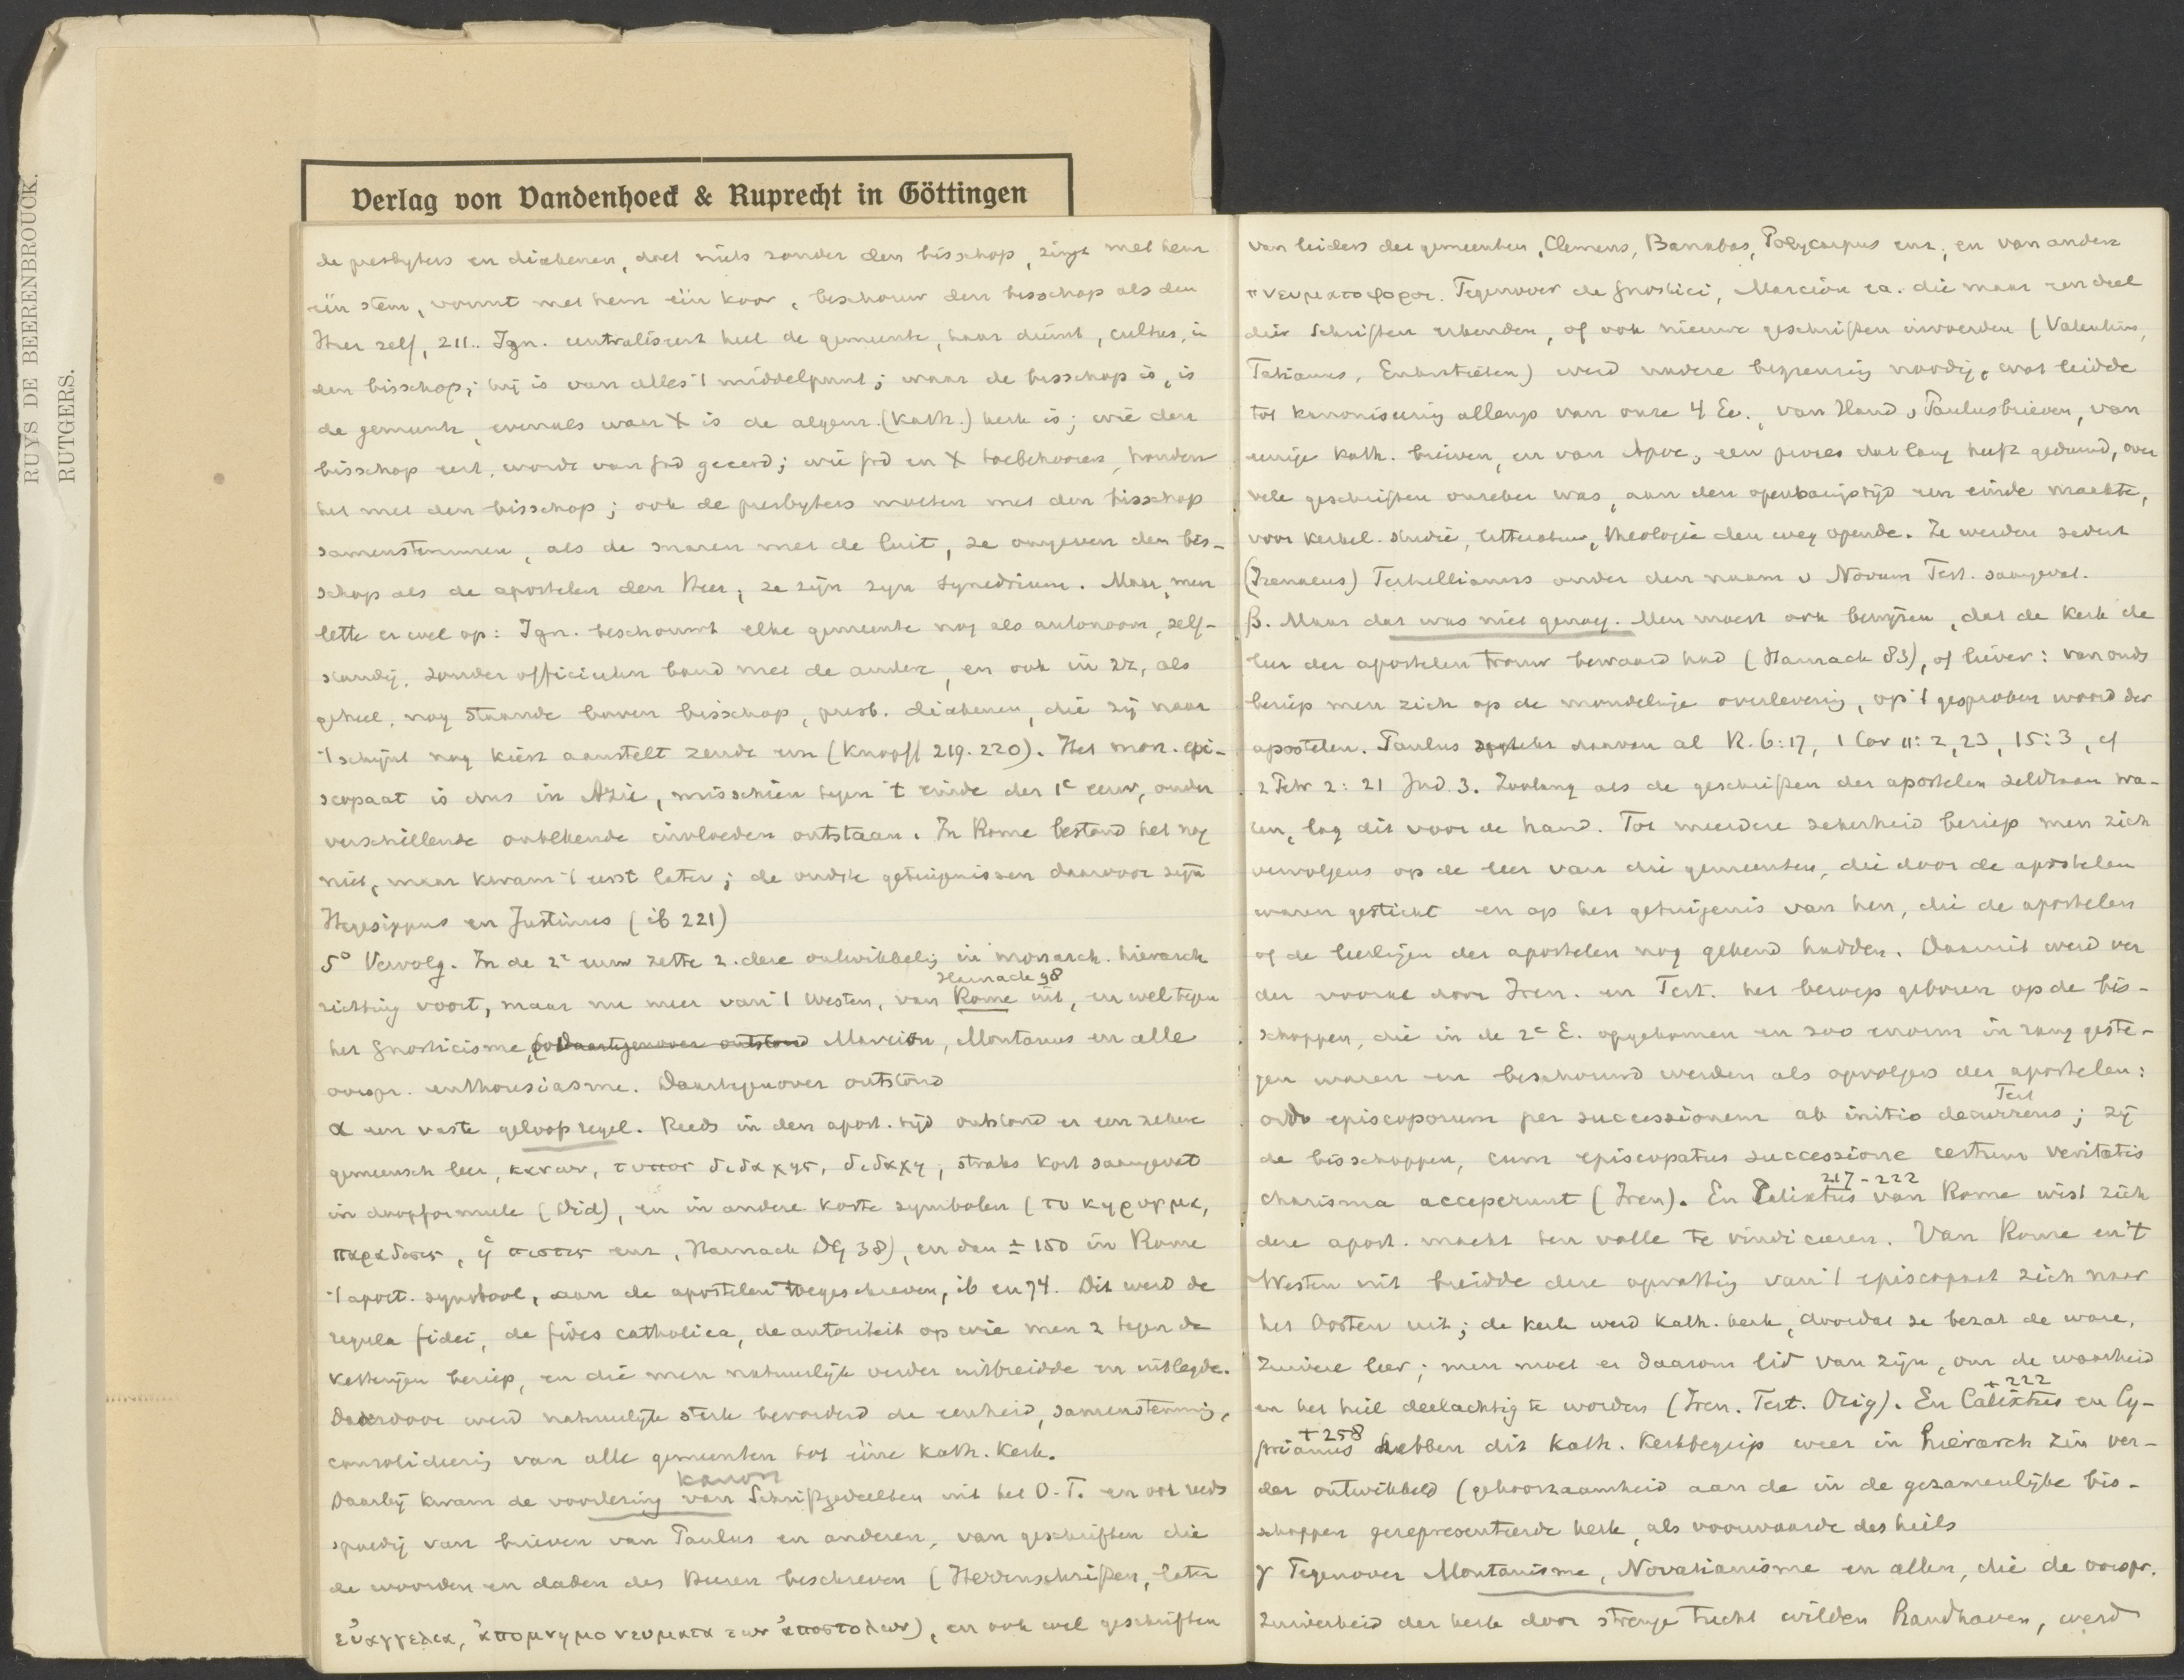 RUYS DE BEERENBROUCK.
RUTGERS.
Verlag von Vandenhoeck & Ruprecht in Göttingen
de presbyters en diakenen, doet niets zonder den bisschop, zingt met hem
één stem, vormt met hem één koor, beschouw den bisschop als den
Heer zelf, 211.. Ign. centraliseert heel de gemeente, haar dienst, cultus, in
den bisschop; hij is van alles 't middelpunt; waar de bisschop is, is
de gemeente, evenals waar X is de algem. (kath.) kerk is; wie den
bisschop eert, wordt van God geeerd; wie God en X toebehooren, houden
het met den bisschop; ook de presbyters moeten met den bisschop
samenstemmen, als de snaren met de luit, ze omgeven den bis-
schop als de apostelen den Heer, ze zijn zijn synedrium. Maar, men
lette er wel op: Ign. beschouwt elke gemeente nog als autonoom, zelf-
standig, zonder officieelen band met de andere, en ook in zr, als
geheel, nog staande boven bisschop, presb. diakenen, die zij naar
't schijnt nog kiest aanstelt zendt enz (Knopff 219. 220). Het mon. epi-
scopaat is dus in Azie, misschien tegen 't einde der 1e eeuw, onder
verschillende onbekende invloeden ontstaan. In Rome bestond het nog
niet, maar kwam 't eerst later; de oudste getuigenissen daarvoor zijn
Hegesippus en Justinus (ib 221)
5° Vervolg. In de 2e eeuw zette z. deze ontwikkeling in monarch. hierarch
Harnack 98
richting voort, maar nu meer van 't Westen, van Rome uit, en wel tegen
het Gnosticisme, Daartegenover ontstond Marcion, Montanus en alle
oorspr. enthousiasme. Daartegenover ontstond
α een vaste geloofsregel. Reeds in den apost. tijd ontstond er een zekere
gemeensch leer, κανων, τυπος διδαχης, διδαχη, straks kort saamgevat
in doopformule (Did), en in andere korte symbolen (το κηρυγμα,
παραδοσις, ἡ πιστις enz, Harnack DG 38), en dan ± 150 in Rome
't apost. symbool, aan de apostelen toegeschreven, ib en 74. Dit werd de
regula fidei, de fides catholica, de autoriteit op wie men z tegen de
ketterijen beriep, en die men natuurlijk verder uitbreidde en uitlegde.
Daardoor werd natuurlijk sterk bevorderd de eenheid, samenstemming,
consolideering van alle gemeenten tot ééne kath. kerk.
kanon
Daarbij kwam de voorlezing van Schriftgedeelten uit het O.T. en ook reeds
spoedig van brieven van Paulus en anderen, van geschriften die
de woorden en daden des Heeren beschreven (Herrenschriften, later
εὐαγγελια, ἀπομνημονευματα των ἀποστολων), en ook wel geschriften
van leiders der gemeenten, Clemens, Barnabas, Polycarpus enz, en van andere
πνευματοφοροι. Tegenover de Gnostici, Marcion ea. die maar een deel
dier Schriften erkenden, of ook nieuwe geschriften invoerden (Valentinus,
Tatianus, Enkratieten) werd nadere begrenzing noodig, wat leidde
tot kanoniseering allengs van onze 4 Ev., van Hand, Paulusbrieven, van
eenige kath. brieven, en van Apoc, een proces dat lang heeft geduurd, over
vele geschriften onzeker was, aan den openbaringstijd een einde maakte,
voor kerkel. studie, litteratuur, theologie den weg opende. Ze werden sedert
(Irenaeus) Tertullianus onder den naam v Novum Test. saamgevat.
β. Maar dat was niet genoeg. Men moest ook bewijzen, dat de kerk de
leer der apostelen trouw bewaard had (Harnack 83), of liever: van ouds
beriep men zich op de mondelinge overlevering, op 't gesproken woord der
apostelen. Paulus spreekt daarvan al R. 6:17, 1 Cor 11:2, 23, 15:3, cf
2 Petr 2:21 Jud 3. Zoolang als de geschriften der apostelen zeldzaam wa-
ren, lag dit voor de hand. Tot meerdere zekerheid beriep men zich
vervolgens op de leer van die gemeenten, die door de apostelen
waren gesticht en op het getuigenis van hen, die de apostelen
of de leerlingen der apostelen nog gekend hadden. Daaruit werd ver
der vooral door Iren. en Tert. het beroep geboren op de bis-
schoppen, die in de 2e E. opgekomen en zoo enorm in rang geste-
gen waren en beschouwd werden als opvolgers der apostelen:
Tert
ordo episcoporum per successionem ab initio decurrens; zij
de bisschoppen, cum episcopatus successione certum veritatis
217-222
charisma acceperunt (Iren). En Calixtus van Rome wist zich
deze apost. macht ten volle te vindiceeren. Van Rome en 't
Westen uit breidde deze opvatting van 't episcopaat zich naar
het Oosten uit; de kerk werd kath. kerk, doordat ze bezat de ware,
zuivere leer; men moet er daarom lid van zijn, om de waarheid
en het heil deelachtig te worden (Iren. Tert. Orig). En Calixtus en Cy-
+ 222
prianus hebben dit kath. kerkbegrip weer in hierarch zin ver-
+ 258
der ontwikkeld (gehoorzaamheid aan de in de gezamenlijke bis-
schoppen gerepresenteerde kerk, als voorwaarde des heils
γ Tegenover Montanisme, Novatianisme en allen, die de oorspr.
zuiverheid der kerk door strenge tucht wilden handhaven, werd